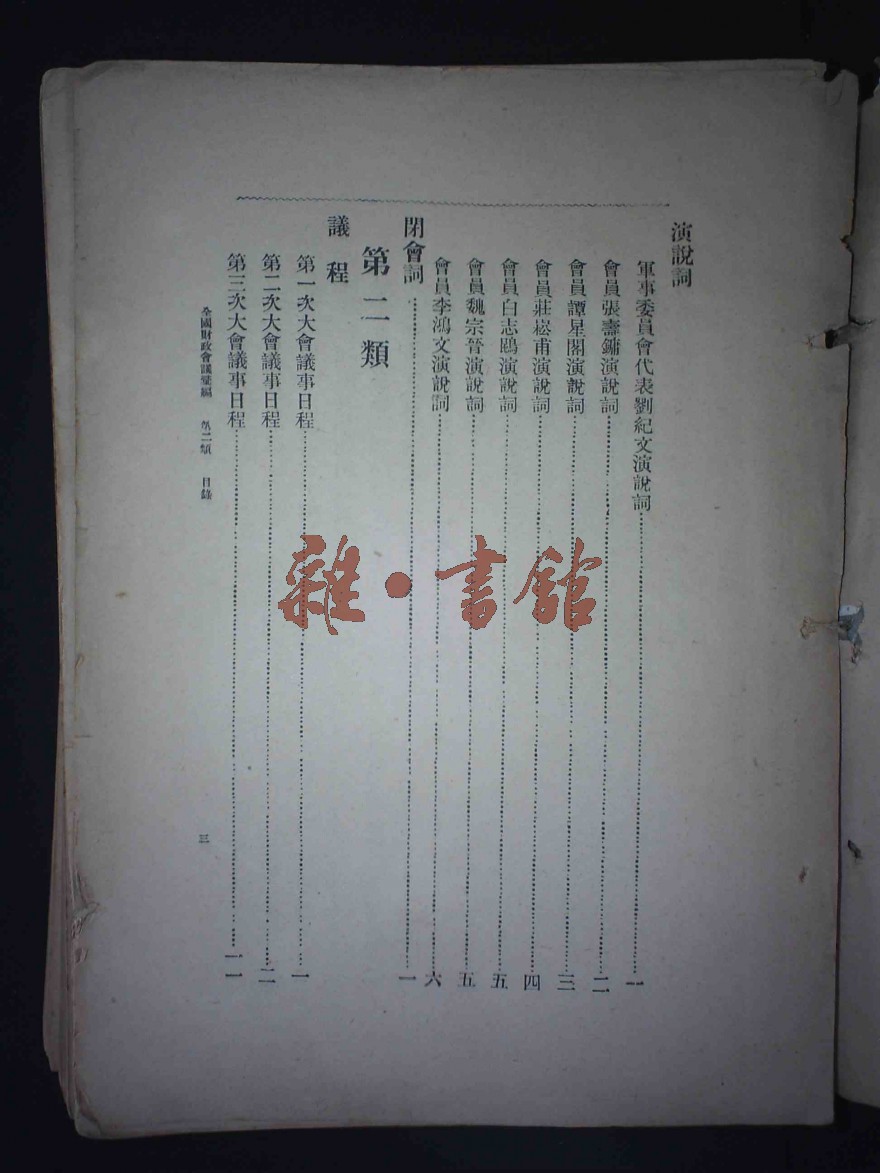 演說詞
軍事委員會代表劉紀文演說詞……一
會員張壽鏞演說詞……二
會員譚星閣演說詞……三
會員莊崧甫演說詞……四
會員白志鵾演說詞……五
會員魏宗晉演說詞……五
會員李鴻文演說詞……六
閉會詞……一
第二類
議程
第一次大會議事日程……一
第二次大會議事日程……二
第三次大會議事日程……一一
全國財政會議彙編 第二類 目錄 三
雜·書館